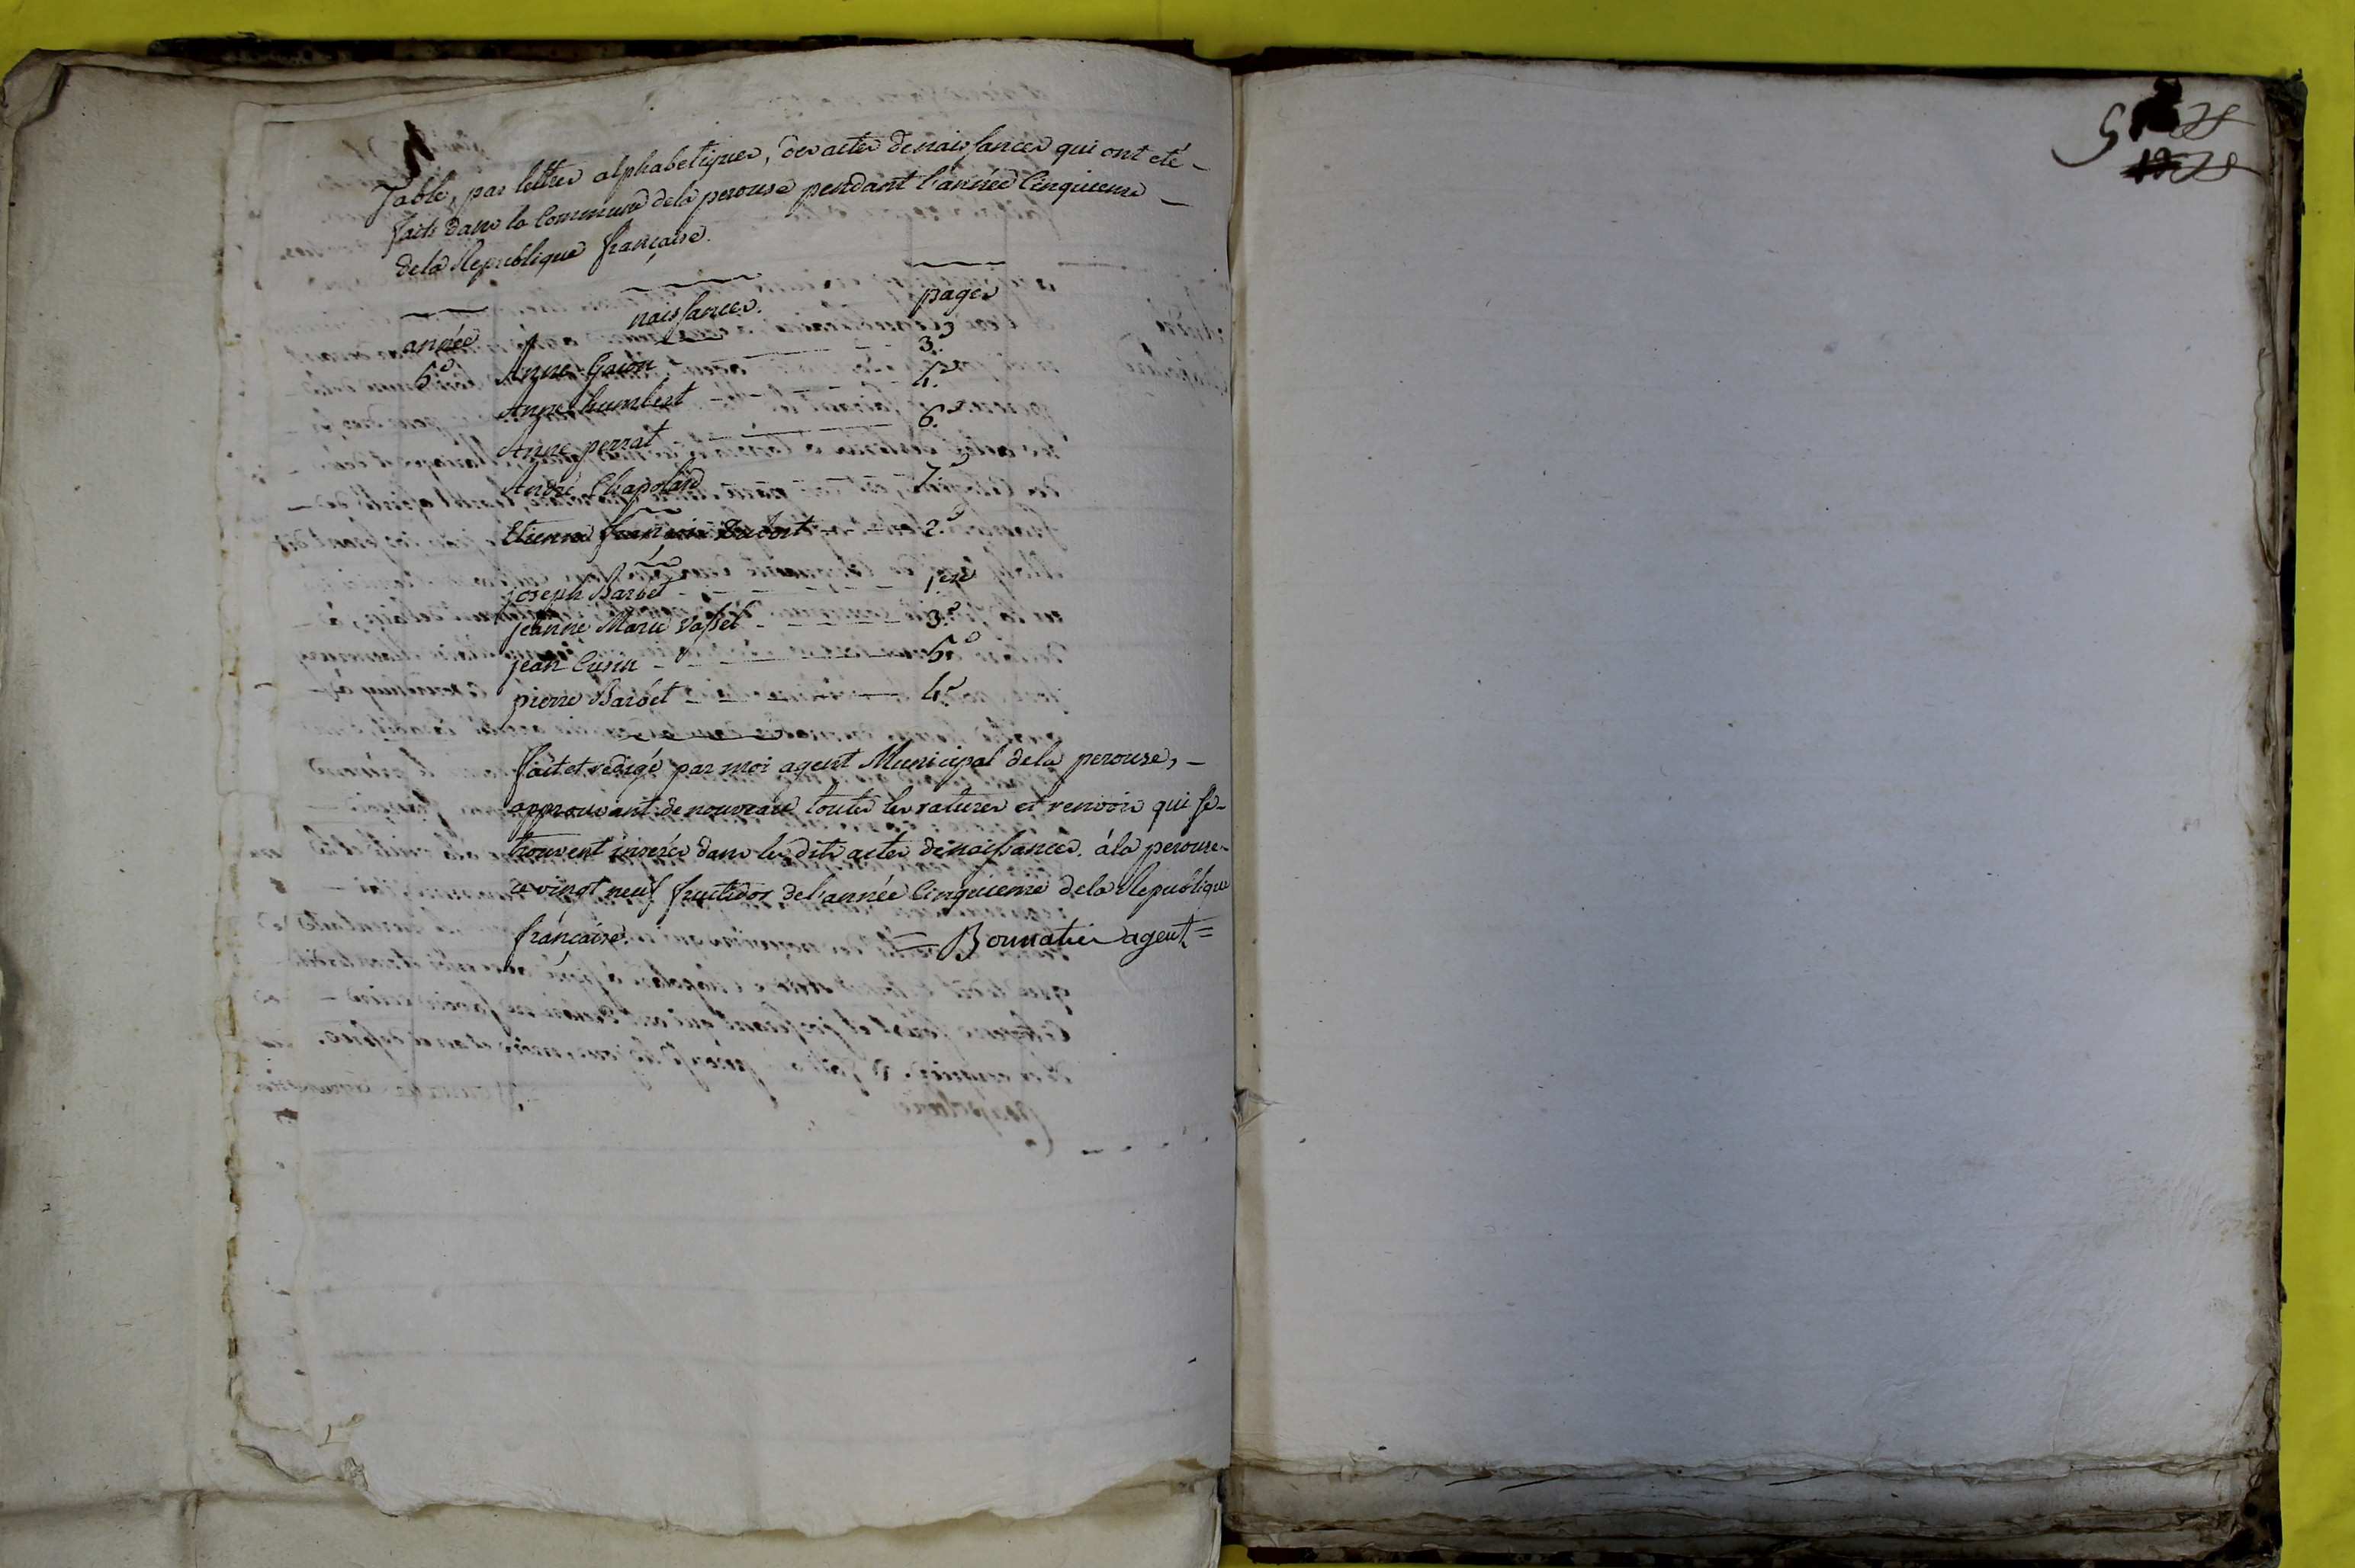 Table, par lettres alphabetiques, des actes de naissances qui ont eté -
faits dans la Commune de la perouse pendant l'année Cinquieme -
de la Republique française.
année naissances. pages
5e Anne Gawn 3.e
Anne humbert - - - 4.e
Anne perrat - - - 6.e
André Chapoland - 7.e
Etienne françois Dubost - - - 2.e
joseph Barbet - - - - - - 1.ere
jeanne Marie vassel - - - - 3.e
jean Cusin - - - - 5.e
pierre Barbet - - - - 4.e
fait et redigé par moi agent Municipal de la perouse, -
approuvant de nouveau toutes les ratures et renvois qui se -
trouvent inserés dans les dits actes de naissances. à la perouse -
ce vingt neuf fructidor de l'année Cinquieme de la Republique
française. = Bonnatier agent =